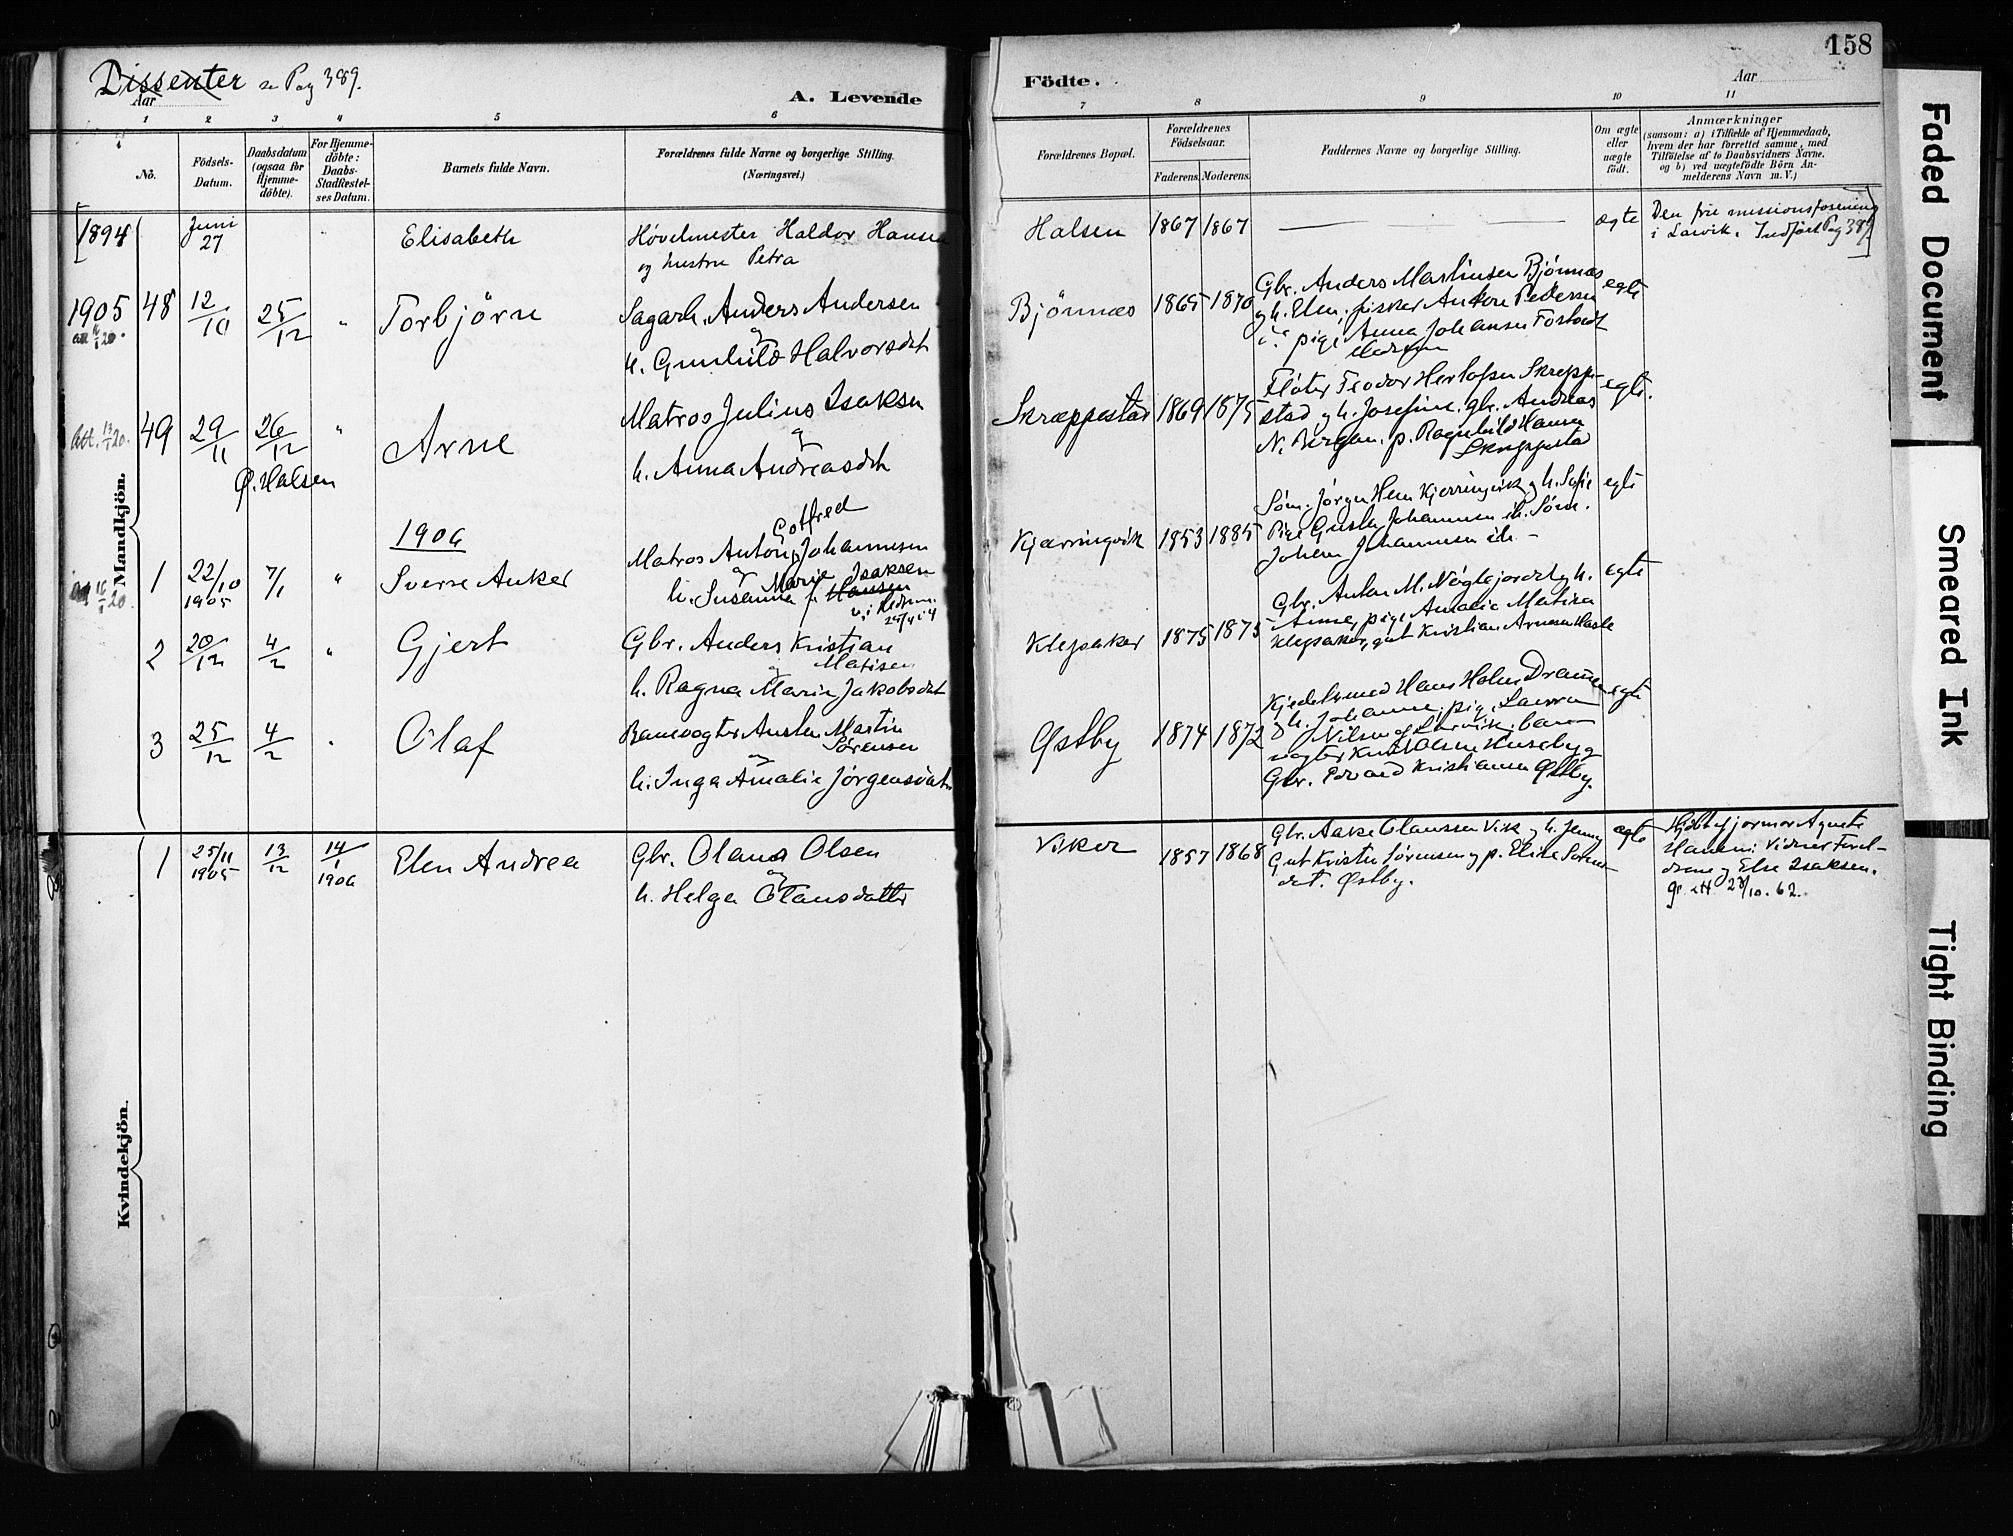 Dissenter se Pag 389.
Aar
A. Levende
Födte.
Aar
158
1 2 3 4 5 6 7 8 9 10 11
No.
Födsels-
Datum.
Daabsdatum
(ogsaa for
Hjemme-
döbte).
For Hjemme-
döbte:
Daabs-
Stadfæstel-
ses Datum.
Barnets fulde Navn.
Forældrenes fulde Navne og borgerlige Stilling.
(Næringsvei.)
Forældrenes Bopæl.
Forældrenes
Födselsaar.
Faderens. Moderens.
Faddernes Navne og borgerlige Stilling.
Om ægte
eller
uægte
födt.
Anmærkninger
(saasom: a) i Tilfælde af Hjemmedaab,
hvem der har forrettet samme, med
Tilföielse af to Daabsvidners Navne,
og b) ved uægtefödte Börn An-
melderens Navn m. V.)
Mandkjön.
[1894
Juni
27
Elisabeth
Høvelmester Haldor Hansen
og hustru Petra
Halsen 1867 1867
ægte
Den frie missionsforening
i Larvik. Indført Pag 389]
1905 48 12/10 25/12 " Torbjörn
Sagarb. Anders Andersen
og
h. Gunhild Halvorsdt
Bjönnæs 1865 1870
Gbr. Anders Martinsen Bjönnæs
og h. Elen, fisker Anton Pedersen
i.c. pige Anna Johansen
egte
Att. 13/1 20. 49 29/11 26/12 " Arne
Ø. Halsen
Matros Julius Isaksen
og
h. Anna Andreasdt
Skræppestad 1869 1875
Fløter Teodor Herlofsen Skreppe-
stad og h. Josefine, gbr. Andreas
N. Bergan, p. Ragnhild Hansen
Skreppestad
egte.
1906
1 22/10 1905 7/1 " Sverre Anker
Gotfred
Matros Anton Johannesen
og
h. Susanna Marie Isaksen
f. Hansen
Kjærringvik 1853 1885
Söm. Jørgen Hen Kjerringvik og h. Sofie
Pige Gusta Johannesen ib. Söm.
Johan Johannesen ib -
egte
2 20/12 4/2 " Gjert
Gbr. Anders Kristian
Matisen
og
h. Ragna Marie Jakobsdt
Klepaker 1875 1875
Gbr. Anton M. Nöglejordet og h.
Anne, pige Amalie Matisen
Klepaker, gut Kristian Arnesen
egte
3 25/12 4/2 " Olaf
Banevogter Martin
Sørensen
og
h. Inga Amalie Jørgensdat.
Østby 1874 1872
Kjedelsmed Hans Holm Drammen
og h. Johanne, pige Laura
Nilsen af Larvik, bane-
vogter Knut Olsen Huseby og
Gbr. Edvard Kristiansen Østby.
egte
Kvindekjön.
1 25/11 1905 13/12 14/1 1906 Elen Andrea
Gbr. Olaus Olsen
og
h. Helga Olausdatter
Viker 1857 1868
Gbr. Aake Olaussen Vik og h. Jenny
Gut Kristen Sørensen og p. Elise Soren-
dat. Østby.
egte
Hjdbt. af jormor Agnete
Hansen. Vidner: Foræl-
drene og Else Isaksen.
28/10. 62.
Faded Document
Smeared Ink
Tight Binding